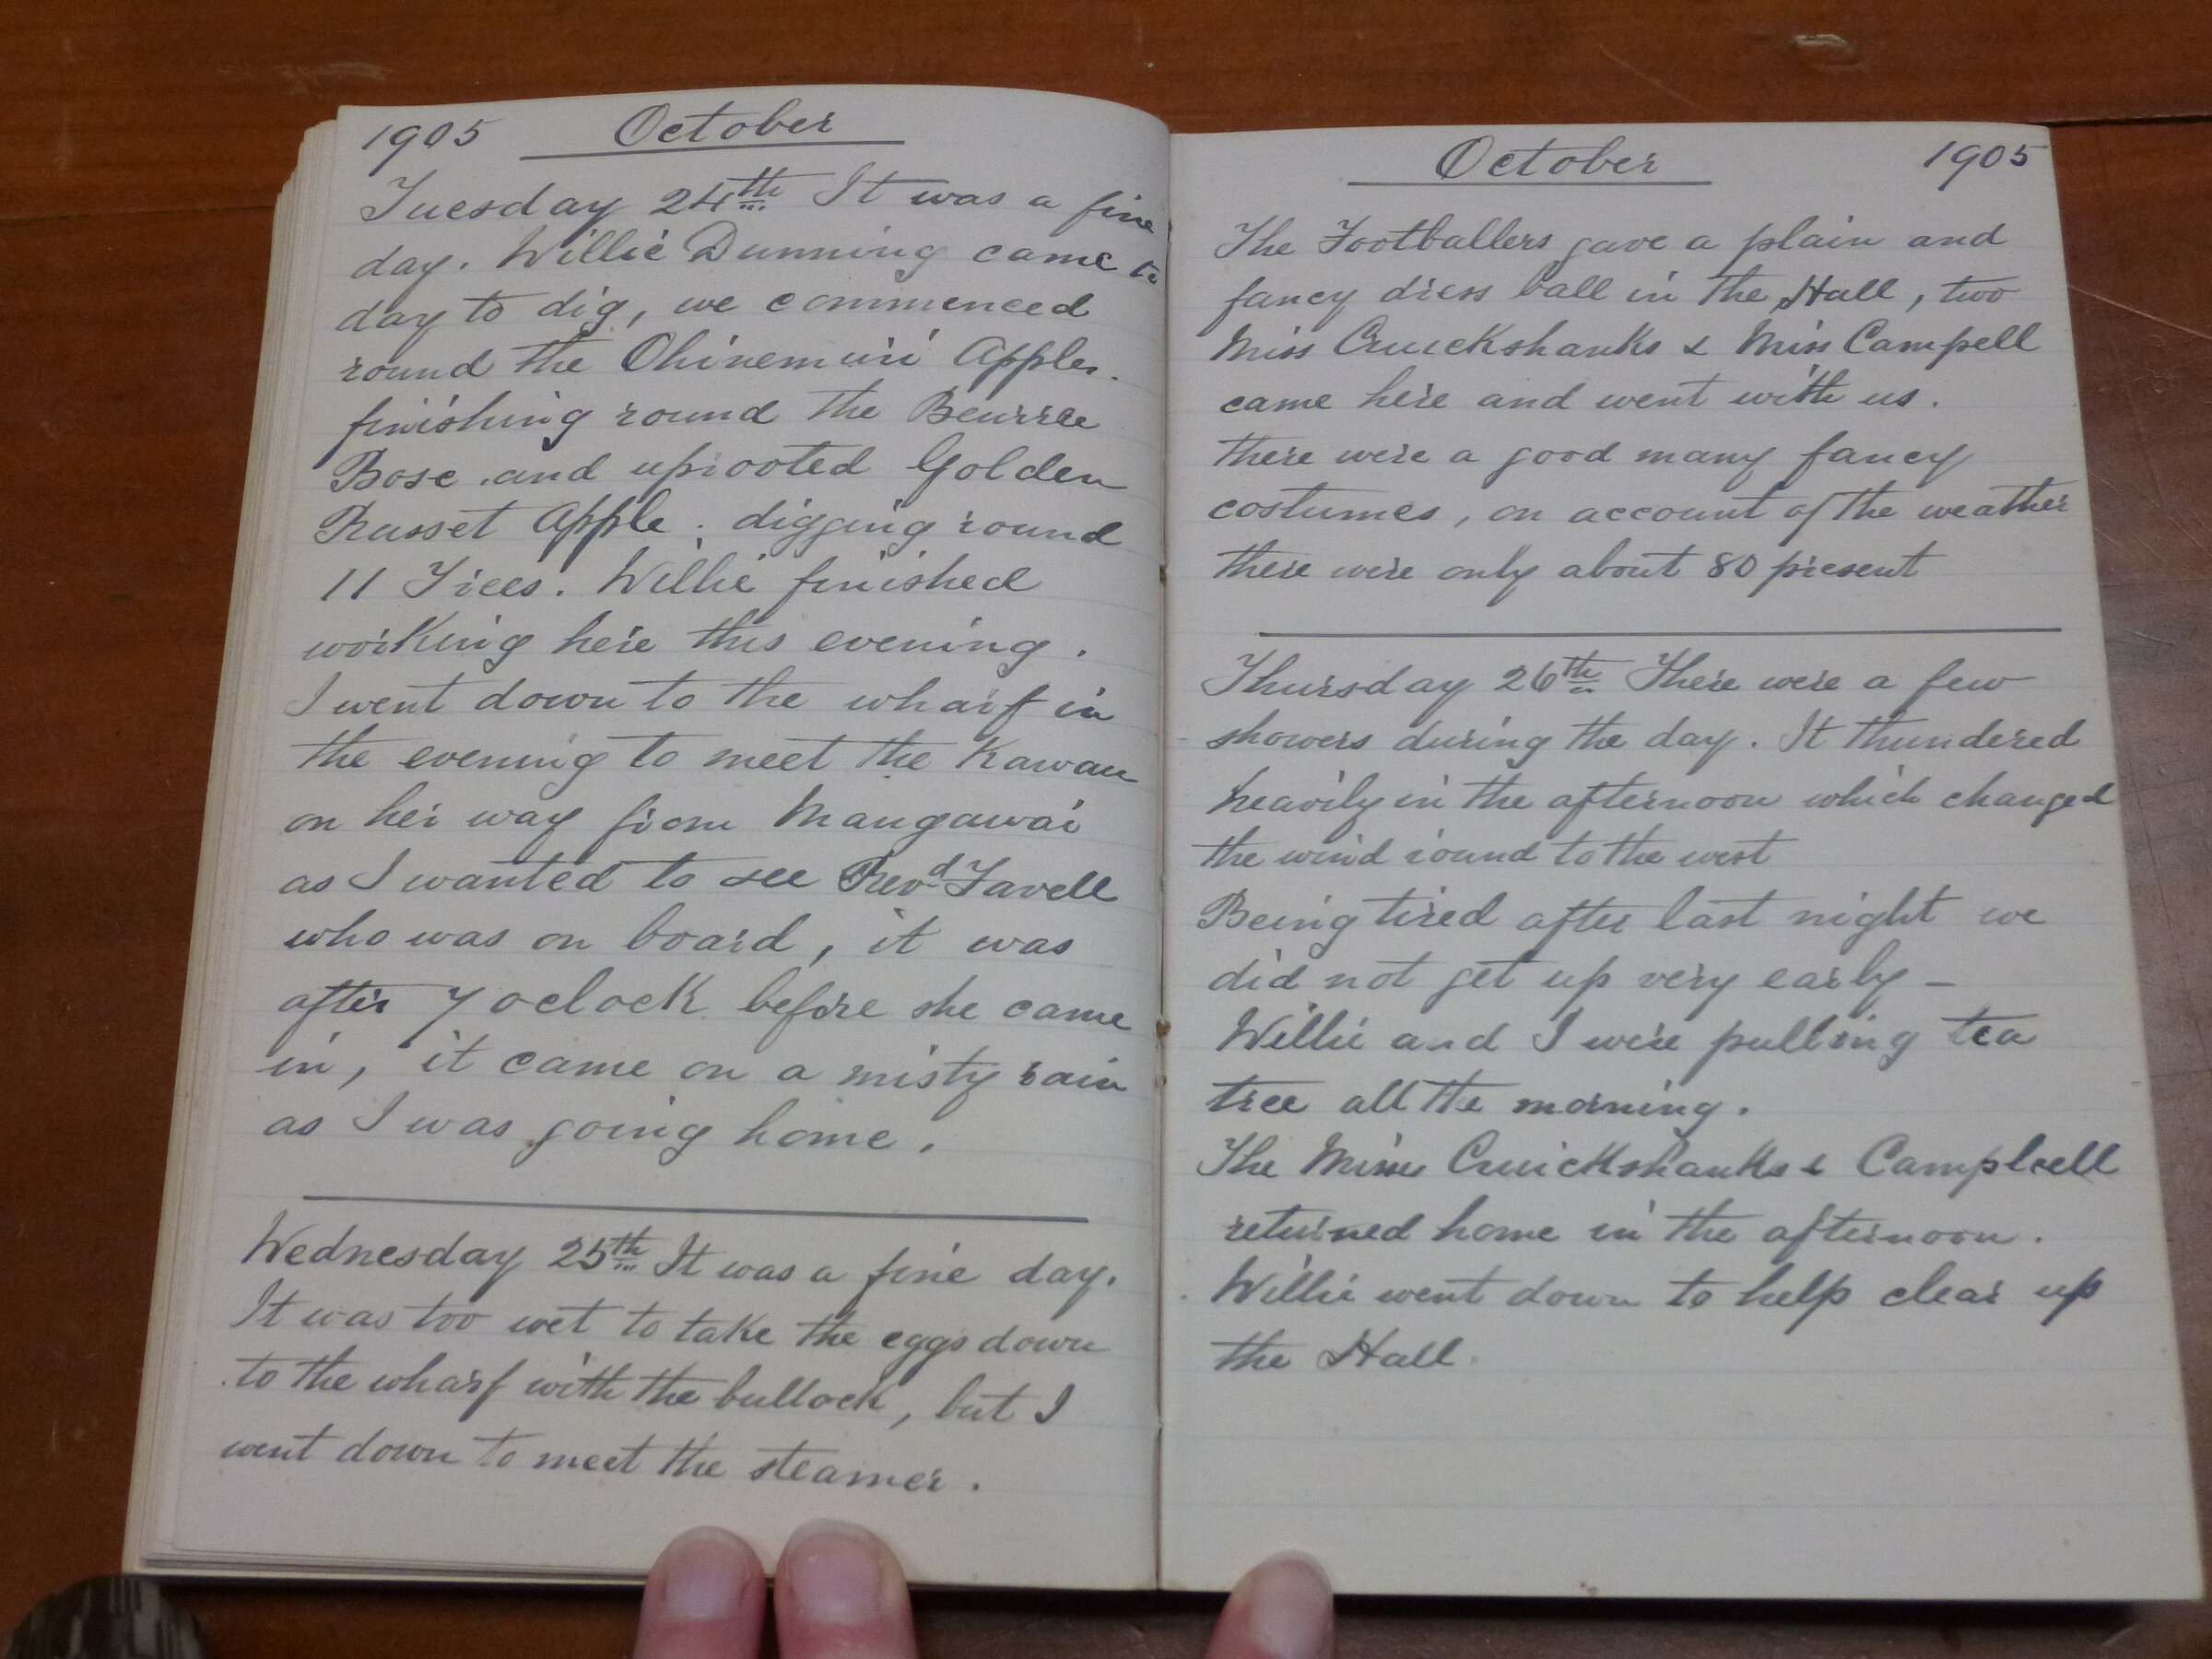 1905 October
Tuesday 24th It was a fine
day. Willie Dunning came to
day to dig, we commenced
round the Ohinemuri Apples.
finishing round the Beurree
Bosc and uprooted Golden
Russet Apple. digging round
11 Trees. Willie finished
working here this evening.
I went down to the wharf in
the evening to meet the Kawau
on her way from Mangawai
as I wanted to see Revd Tavell
who was on board, it was
after 7 oclock before she came
in, it came on a misty rain
as I was going home.
Wednesday 25th It was a fine day.
It was too wet to take the eggs down
to the wharf with the bullock, but I
went down to meet the steamer.
October 1905
The Footballers gave a plain and
fancy dress ball in the Hall, two
Miss Cruickshanks & Miss Campell
came here and went with us.
there were a good many fancy
costumes, on account of the weather
there were only about 80 present
Thursday 26th There were a few
showers during the day. It thundered
heavily in the afternoon which changed
the wind round to the west
Being tired after last night we
did not get up very early -
Willie and I were pulling tea
tree all the morning.
The Misses Cruickshanks & Campbell
returned home in the afternoon.
Willie went down to help clear up
the Hall.